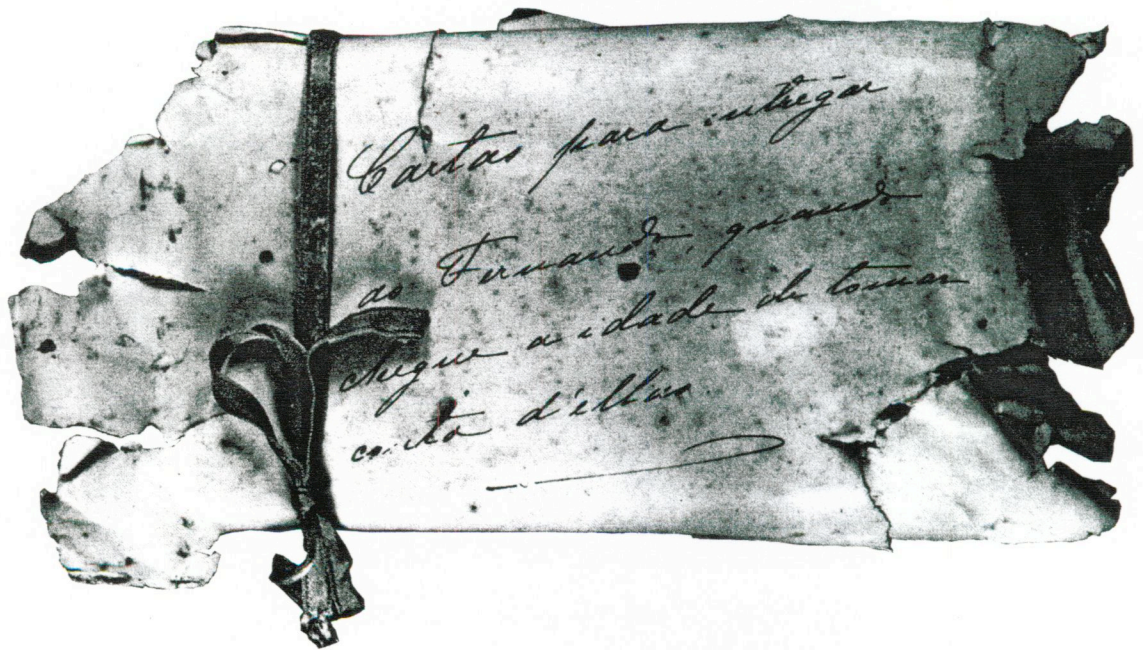 Cartas para entregar
ao Fernando, quando
chegue a idade de tomar
conta d'ellas